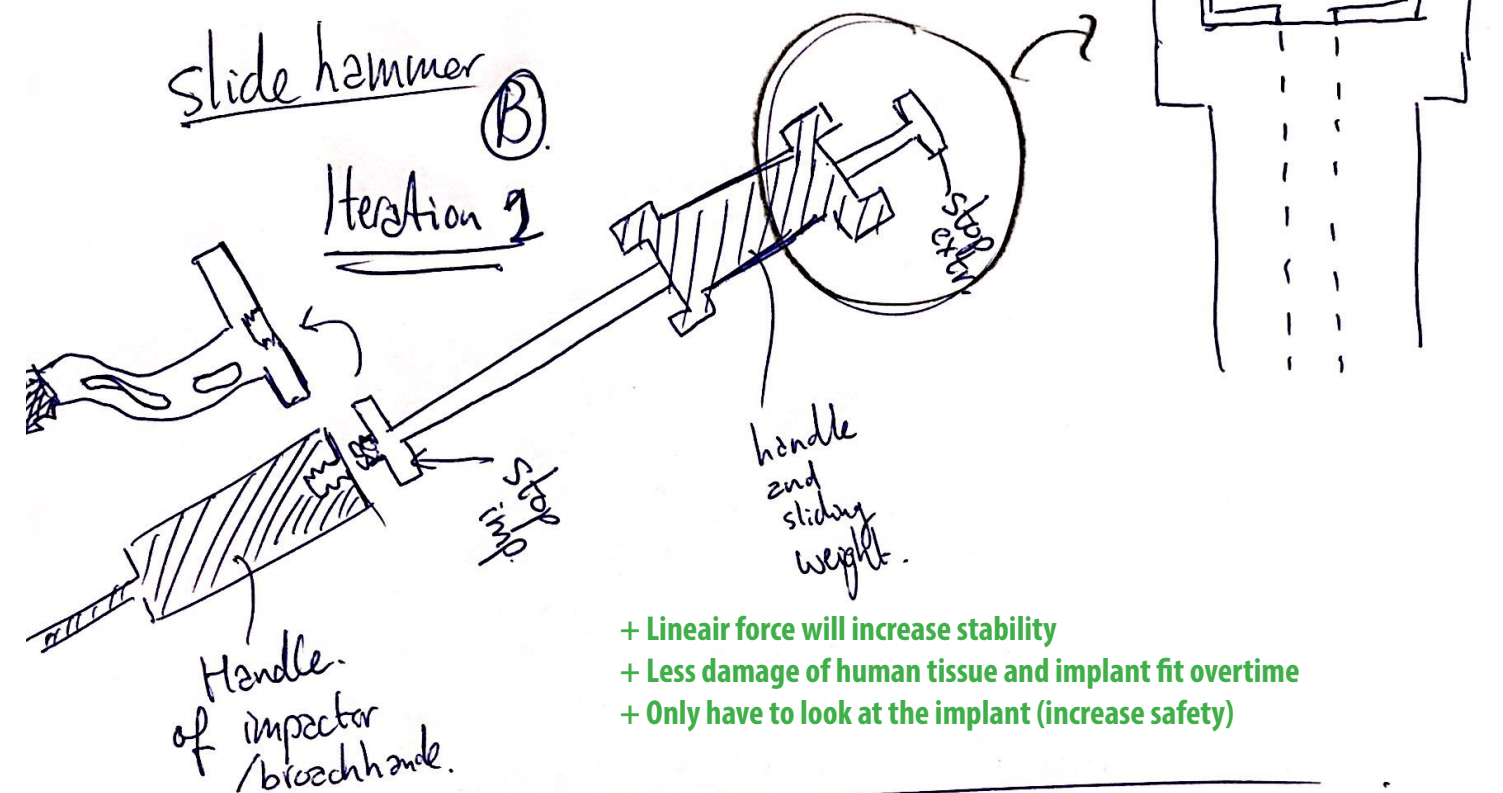 slide hammer
B.
Iteration 1
stop
extr.
stop
imp.
handle
and
sliding
weight.
Handle.
of impactor
/broachhande.
+ Lineair force will increase stability
+ Less damage of human tissue and implant fit overtime
+ Only have to look at the implant (increase safety)